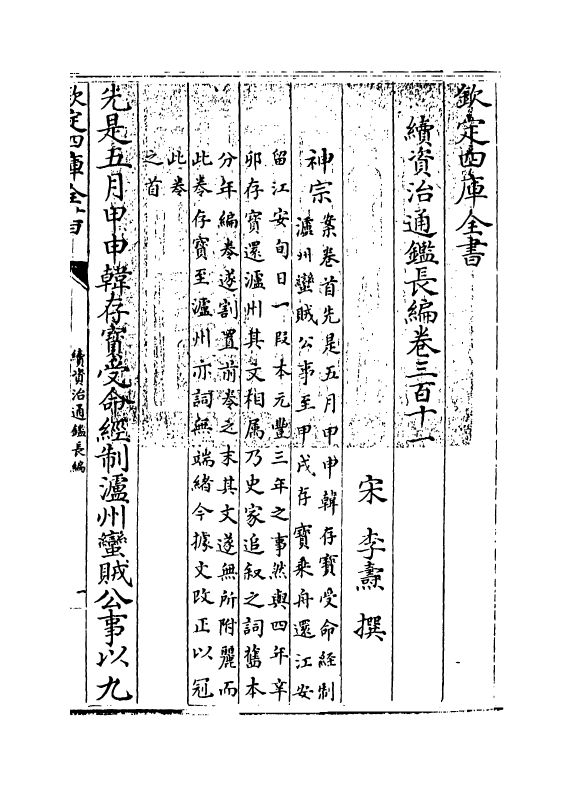 欽定四庫全書
續資治通鑑長編卷三百十一
宋 李燾 撰
神宗
案卷首先是五月甲申韓存寳受命經制
瀘州蠻賊公事至甲戌存寳乘舟還江安
留江安旬日一段本元豐三年之事然與四年辛
卯存寳還瀘州其文相屬乃史家追叙之詞舊本
分年編卷遂割置前卷之末其文遂無所附麗而
此卷存寳至瀘州亦詞無端緒今據文改正以冠
此卷
之首
先是五月甲申韓存寳受命經制瀘州蠻賊公事以九
欽定四庫全書
續資治通鑑長編
一